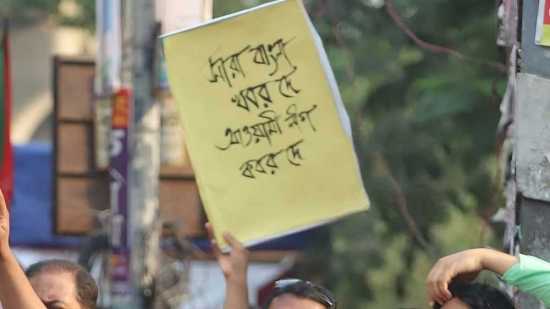 সারা বাংলা
খবর দে
আওয়ামী লীগ
কবর দে